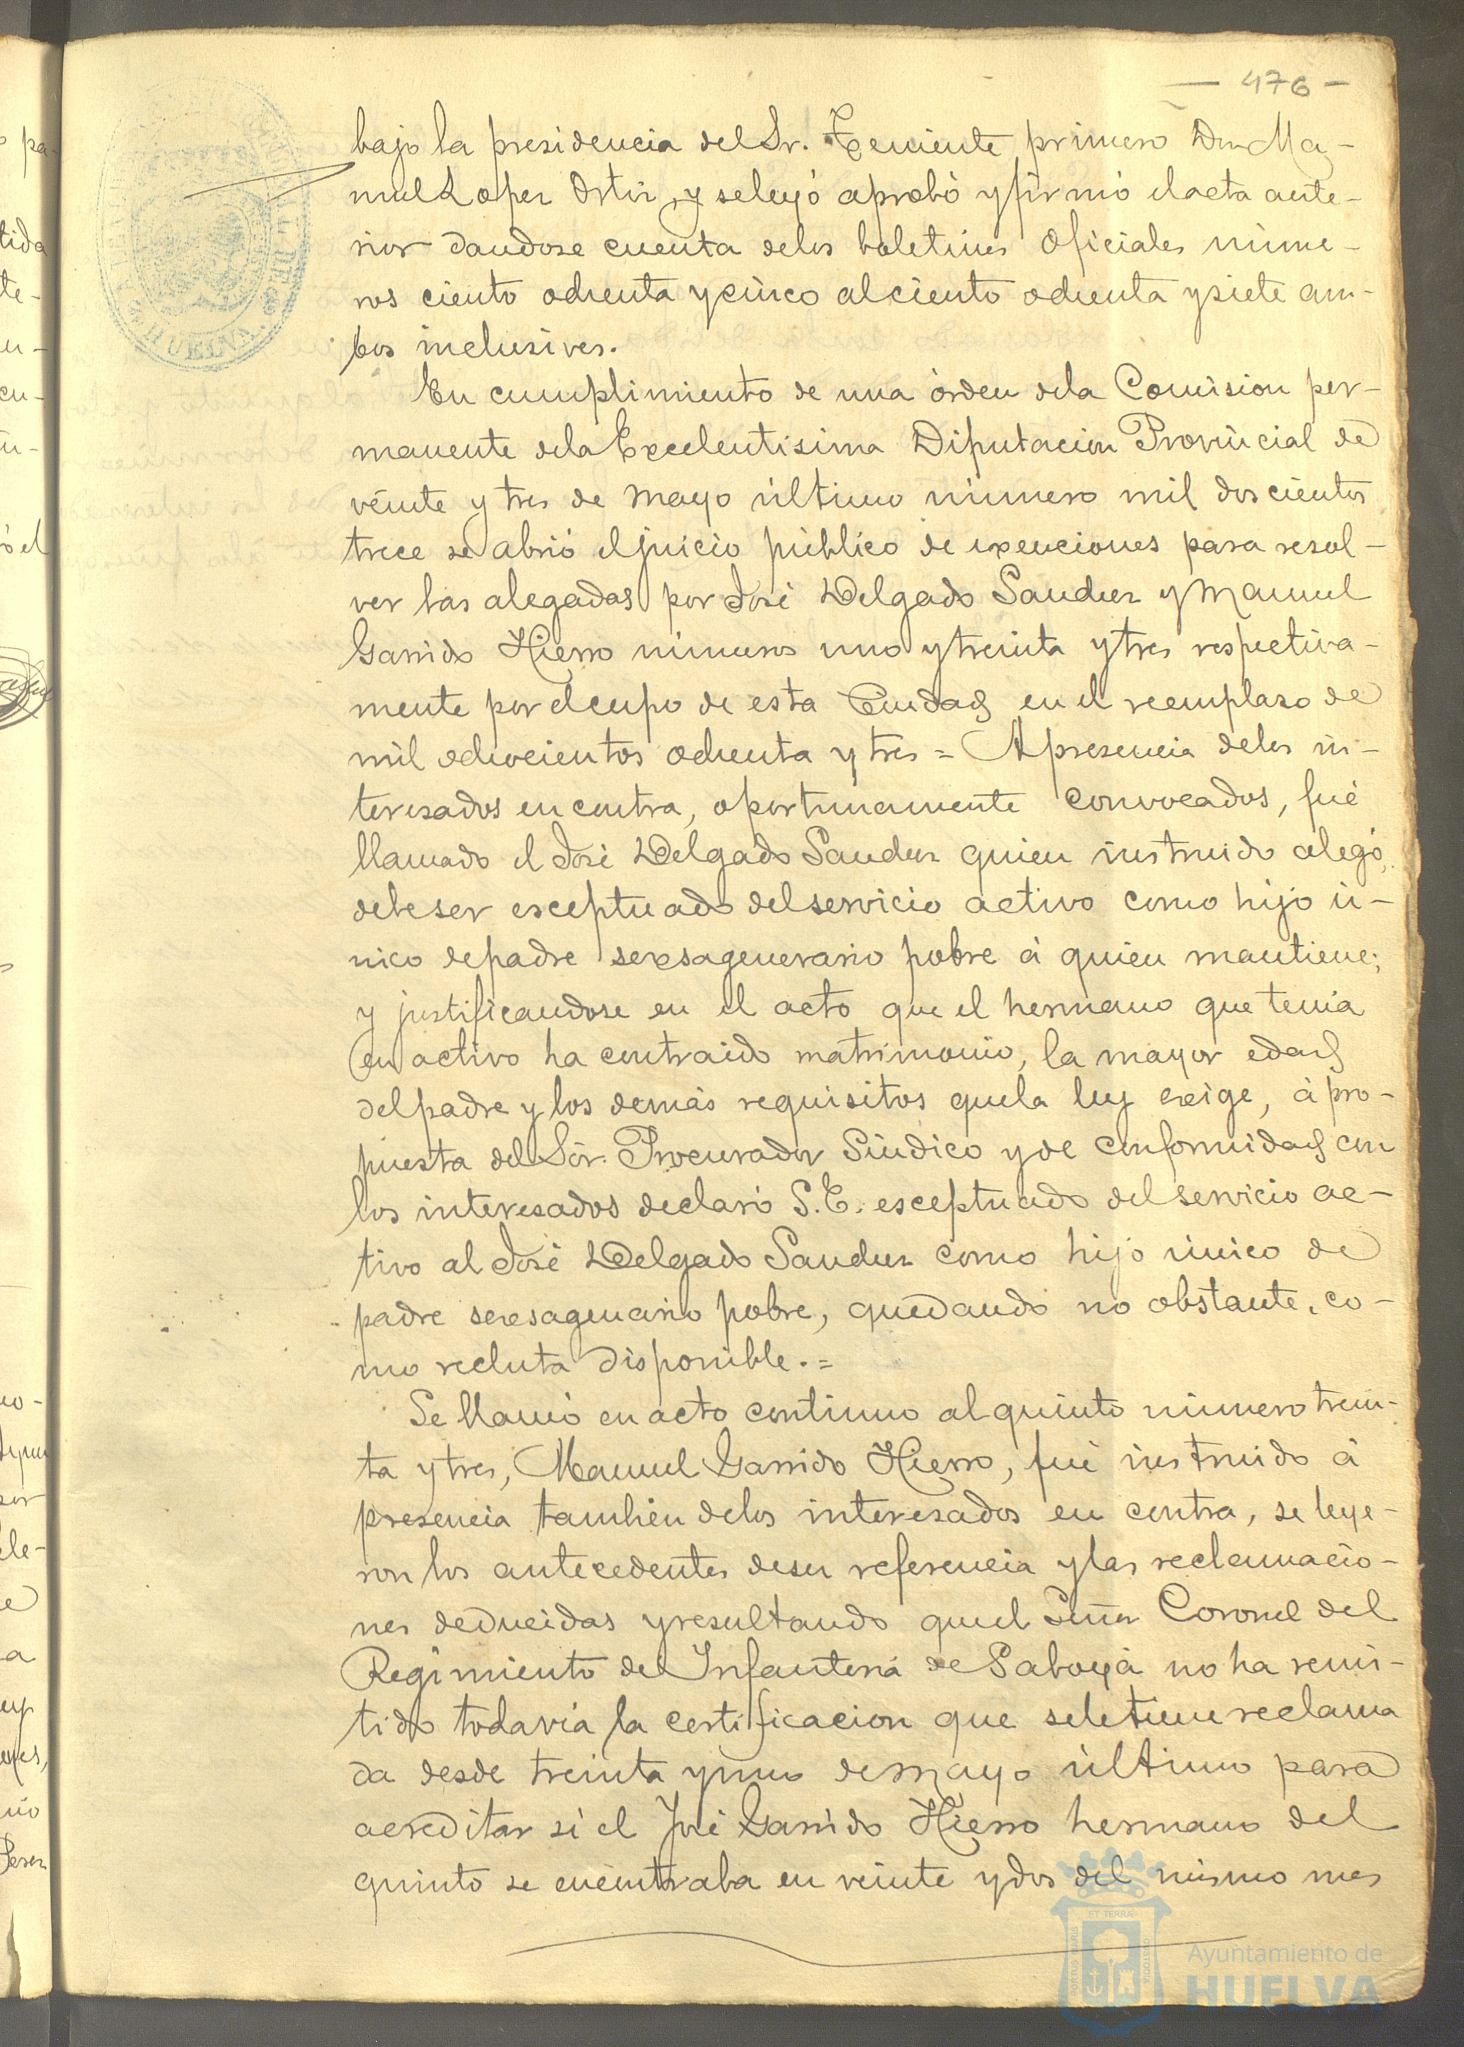 - 476 -
bajo la presidencia del Sr. Teniente primero Don Ma-
nuel Lopez Ortiz, y se leyó aprobó y firmó el acta ante-
rior dandose cuenta delos boletines Oficiales núme-
ros ciento ochenta y cinco al ciento ochenta y siete am-
bos inclusives.
En cumplimiento de una órden dela Comision per-
manente dela Excelentisima Diputacion Provincial de
veinte y tres de Mayo último número mil doscientos
trece se abrió el juicio público de exenciones para resol-
ver las alegadas por José Delgado Sanchez y Manuel
Garrido Hierro números uno y treinta y tres respectiva-
mente por el cupo de esta Ciudad en el reemplazo de
mil ochocientos ochenta y tres = A presencia delos in-
teresados en contra, oportunamente convocados, fué
llamado el José Delgado Sanchez quien instruido alegó,
debe ser esceptuado del servicio activo como hijo ú-
nico de padre sexsagenerario pobre á quien mantiene;
y justificandose en el acto que el hermano que tenia
en activo ha contraido matrimonio, la mayor edad
del padre y los demás requisitos que la ley exige, á pro-
puesta del Sór. Procurador Sindico y de conformidad con
los interesados declaró S.E. esceptuado del servicio ac-
tivo al José Delgado Sanchez como hijo único de
padre sexsagenario pobre, quedando no obstante, co-
mo recluta disponible. =
Se llamó en acto continuo al quinto número trein-
ta y tres, Manuel Garrido Hierro, fué instruido á
presencia tambien delos interesados en contra, se leye-
ron los antecedentes de su referencia y las reclamacio-
nes deducidas y resultando que el Señor Coronel del
Regimiento de Infanteria de Saboya no ha remi-
tido todavia la certificacion que se le tiene reclama
da desde treinta y uno de Mayo último para
acreditar si el José Garrido Hierro hermano del
quinto se encontraba en veinte y dos del mismo mes
HUELVA
Ayuntamiento de
HUELVA